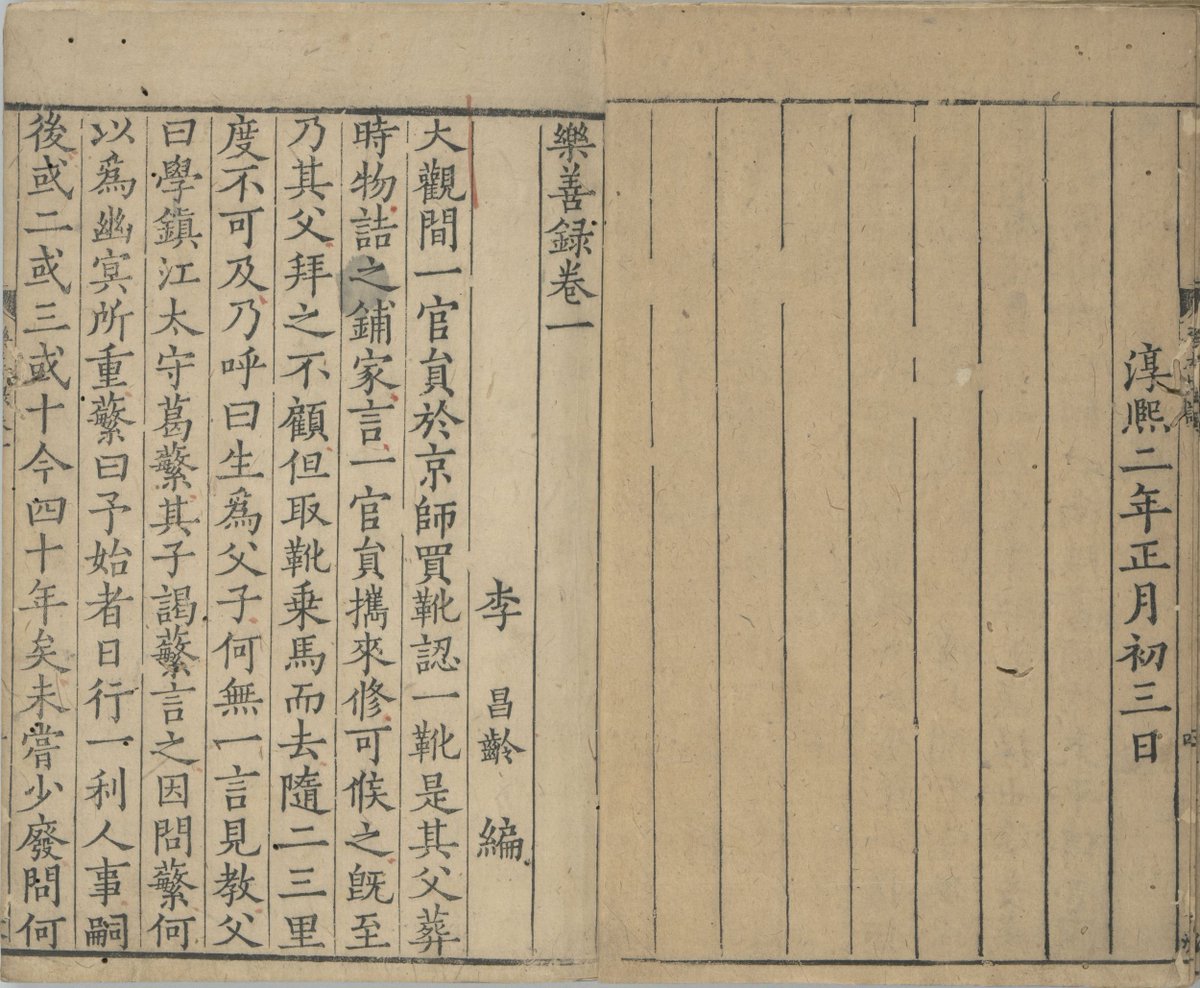 淳熙二年正月初三日
樂善録卷一
李昌齡編
大觀間一官負於京師買靴認一靴是其父葬
時物詰之鋪家言一官負攜來修可候之既至
乃其父拜之不顧但取靴乗馬而去隨二三里
度不可及乃呼曰生爲父子何無一言見教父
曰學鎮江太守葛蘩其子謁蘩言之因問蘩何
以爲幽冥所重蘩曰予始者日行一利人事嗣
後或二或三或十今四十年矣未甞少廢問何